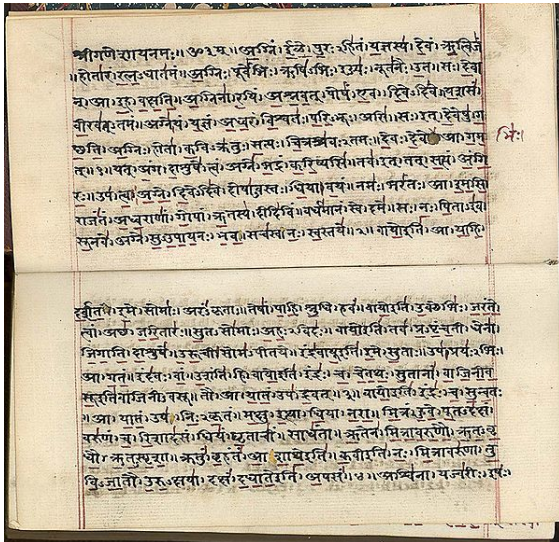 श्रीगणेशायनमः॥ॐ॥ अग्निं। ईळे। पुरःऽहितं। यज्ञस्य। देवं। ऋत्विजं
॥होतारं। रत्नऽधातमं॥ अग्निः। पूर्वेभिः। ऋषिऽभिः। ईड्यः। नूतनैः। उत। सः। देवा
न्। आ। इह। वक्षति॥ अग्निना। रयिं। अश्नवत्। पोषं। एव। दिवेऽदिवे। यशसं।
वीरवत्ऽतमं॥ अग्ने। यं। यज्ञं। अध्वरं। विश्वतः। परिऽभूः। असि। सः। इत्। देवेषु। ग
च्छति॥ अग्निः। होता। कविऽक्रतुः। सत्यः। चित्रश्रवःऽतमः। देवः। देवेभिः। आ। गम
त्॥१॥ यत्। अंग। दाशुषे। त्वं। अग्ने। भद्रं। करिष्यसि। तव। इत्। तत्। सत्यं। अंगि
रः॥ उप। त्वा। अग्ने। दिवेऽदिवे। दोषाऽवस्तः। धिया। वयं। नमः। भरंतः। आ। इमसि॥
राजंतं। अध्वराणां। गोपां। ऋतस्य। दीदिविं। वर्धमानं। स्वे। दमे॥ सः। नः। पिताऽइव।
सूनवे। अग्ने। सुऽउपायनः। भव। सचस्व। नः। स्वस्तये॥२॥ वायो इति। आ। याहि।
भिः।
दर्शत। इमे। सोमाः। अरंऽकृताः। तेषां। पाहि। श्रुधि। हवं॥ वायो इति। उक्थेभिः। जरंते।
त्वां। अच्छ। जरितारः। सुतऽसोमाः। अहःऽविदः॥ वायो इति। तव। प्रऽपृंचती। धेना।
जिगाति। दाशुषे। उरूची। सोमऽपीतये॥ इंद्रवायू इति। इमे। सुताः। उप। प्रयःऽभिः।
आ। गतं। इंदवः। वां। उशंति। हि॥ वायो इति। इंद्रः। च। चेतथः। सुतानां। वाजिनीव
सू इति वाजिनीऽवसू। तौ। आ। यातं। उप। द्रवत्॥३॥ वायो इति। इंद्रः। च। सुन्वतः
। आ। यातं। उप। निःऽकृतं। मक्षु। इत्था। धिया। नरा॥ मित्रं। हुवे। पूतऽदक्षं।
वरुणं। च। रिशादसं। धियं। घृताचीं। साधंता॥ ऋतेन। मित्रावरुणौ। ऋतऽवृ
धौ। ऋतऽस्पृशा। क्रतुं। बृहंतं। आशाथे इति॥ कवी इति। नः। मित्रावरुणा। तु
विऽजातौ। उरुऽक्षया। दक्षं। दधाते इति। अपसं॥४॥ अश्विना। यज्वरीः। इषः।